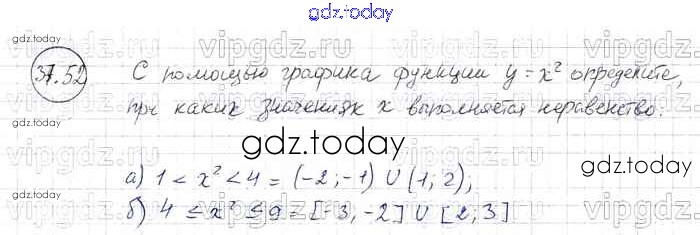 gdz.today
vipgdz.ru vipgdz.ru vipgdz.ru
37.52 С помощью графика функции y = x² определите,
при каких значениях x выполняется неравенство:
gdz.today gdz.today gdz.today
vipgdz.ru vipgdz.ru vipgdz.ru
а) 1 < x² < 4 = (-2; -1) ∪ (1; 2);
б) 4 ≤ x² ≤ 9 = [-3, -2] ∪ [2; 3]